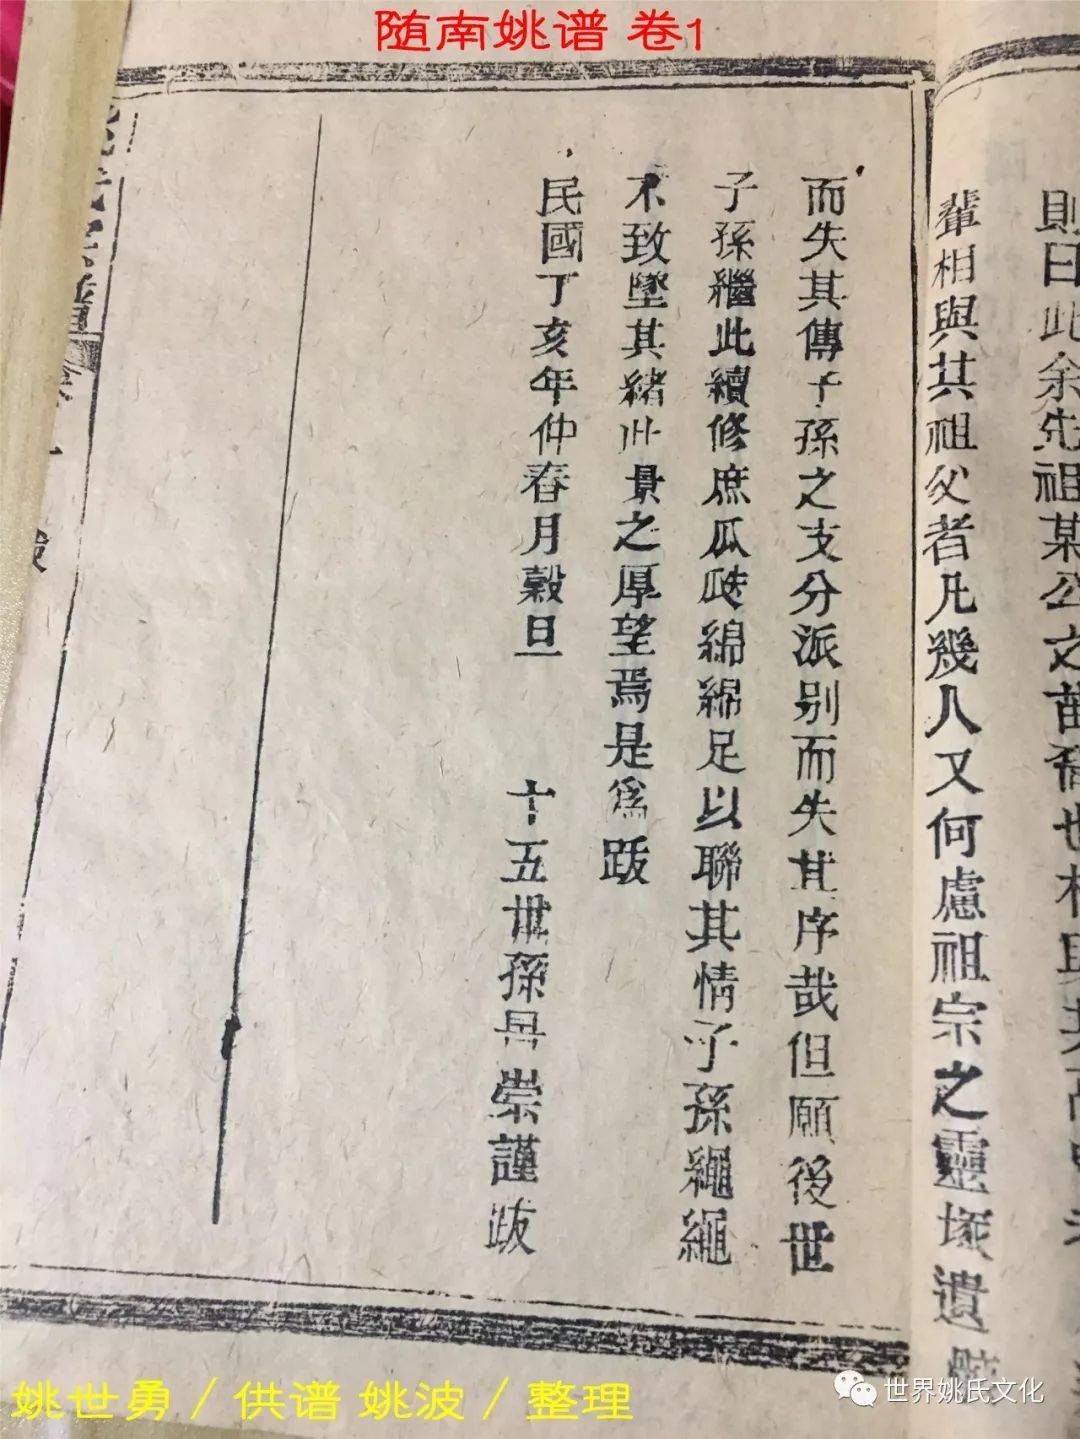 随南姚谱 卷1
則曰此余先祖某公之苗裔也
輩相與其祖父者凡幾人又何慮祖宗之靈塚遺
而失其傳子孫之支分派别而失其序哉但願後世
子孫繼此續修庶瓜瓞綿綿足以聯其情子孫繩繩
不致墜其緒此景之厚望焉是爲跋
民國丁亥年仲春月穀旦
十五世孫丹崇謹跋
姚氏宗譜
姚世勇／供谱 姚波／整理
世界姚氏文化